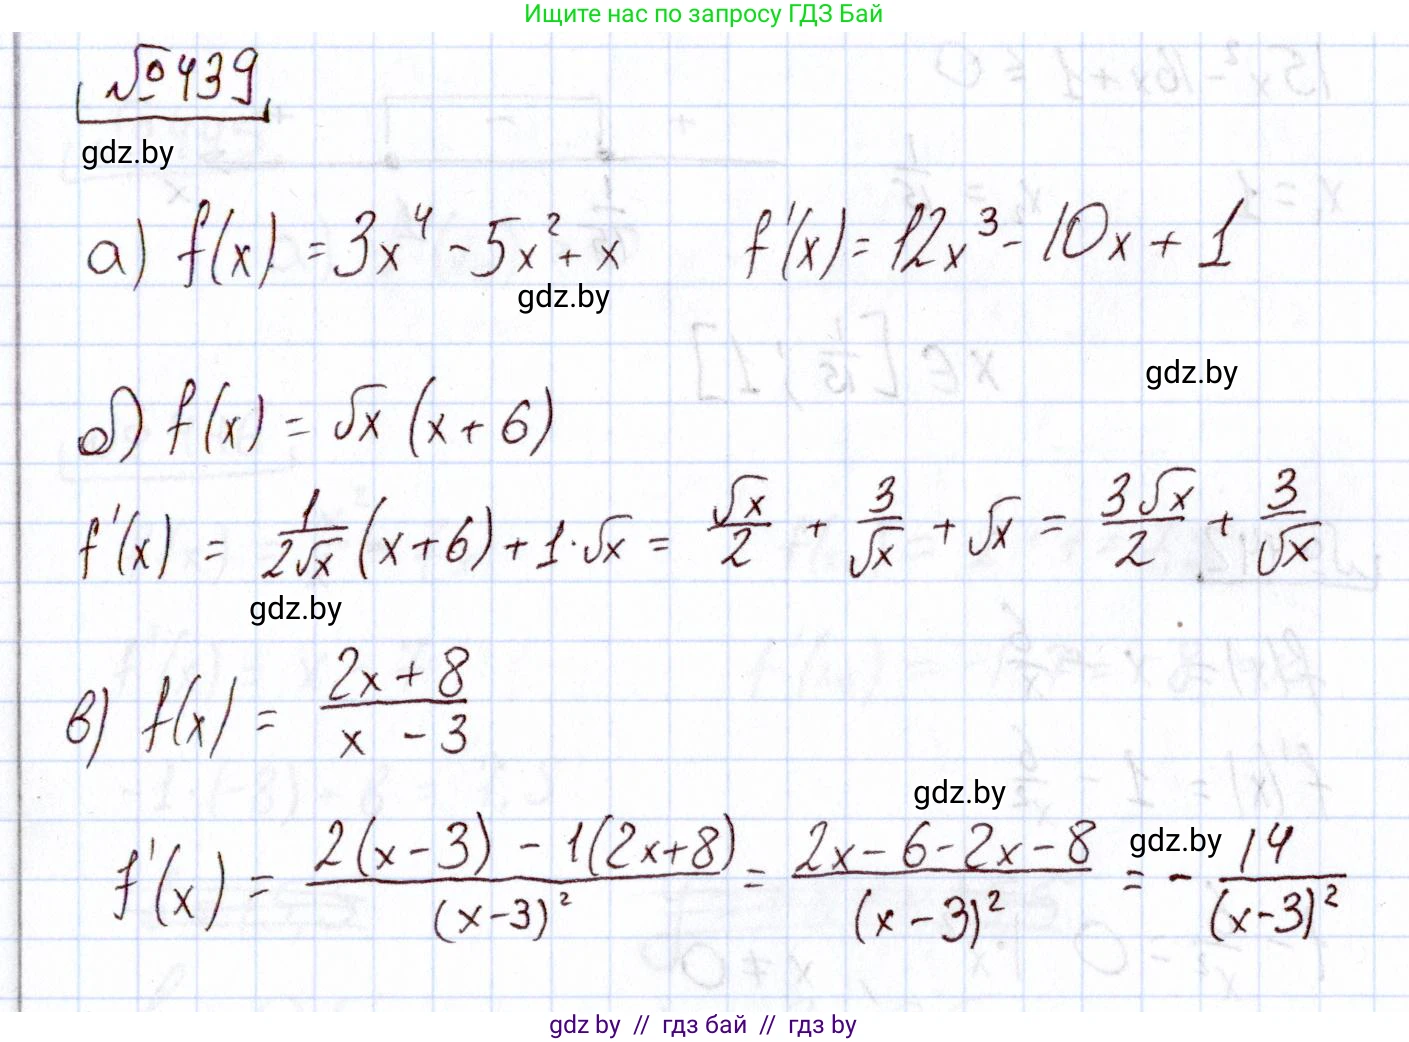 Ищите нас по запросу ГДЗ Бай
№439
gdz.by
а) f(x) = 3x⁴ - 5x² + x f'(x) = 12x³ - 10x + 1
gdz.by
gdz.by
б) f(x) = √x (x + 6)
f'(x) = 1/(2√x) (x + 6) + 1·√x = √x/2 + 3/√x + √x = 3√x/2 + 3/√x
gdz.by
в) f(x) = (2x + 8)/(x - 3)
gdz.by
gdz.by
f'(x) = (2(x - 3) - 1(2x + 8))/(x - 3)² = (2x - 6 - 2x - 8)/(x - 3)² = - 14/(x - 3)²
gdz by // гдз бай // гдз by